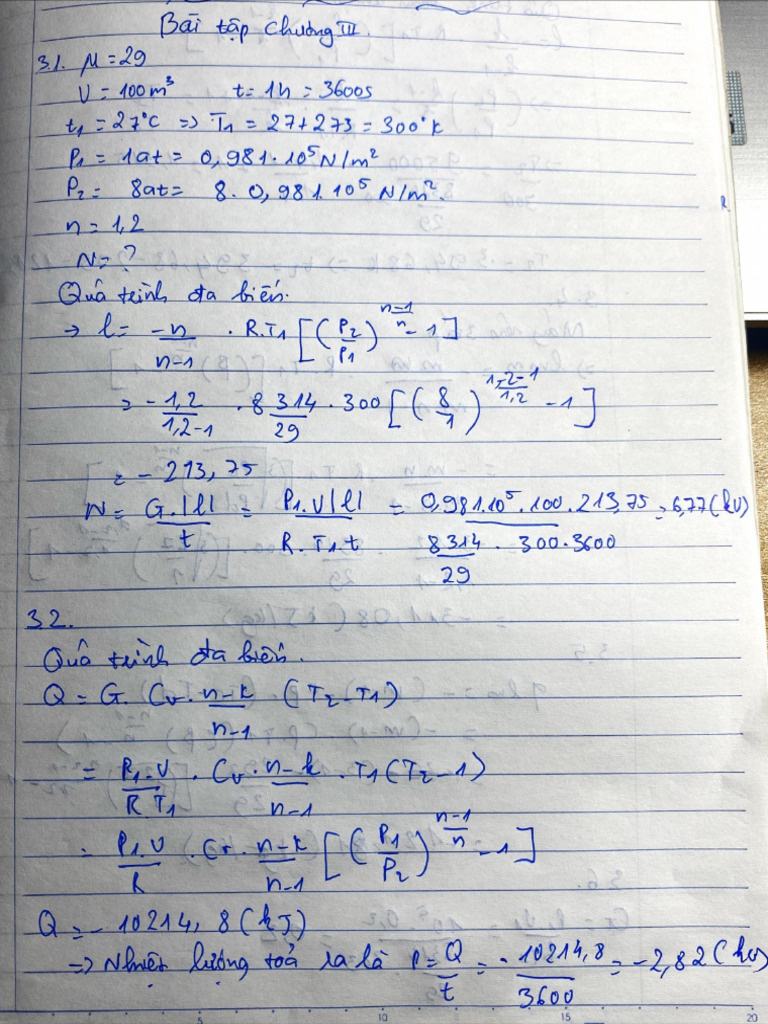 Bài tập chương III.
3.1. μ = 29
V = 100m³ t = 1h = 3600s
t₁ = 27°C => T₁ = 27+273 = 300°k
P₁ = 1at = 0,981.10⁵ N/m²
P₂ = 8at = 8. 0,981.10⁵ N/m².
n = 1,2
N = ?
Quá trình đa biến.
→ l = -n/(n-1) . R.T₁ [(P₂/P₁)^((n-1)/n) - 1]
= -1,2/(1,2-1) . 8314/29 . 300 [(8/1)^((1,2-1)/1,2) - 1]
= - 213,75
N = G.|l|/t = P₁.V|l|/(R.T₁.t) = 0,981.10⁵.100.213,75/(8314/29 . 300.3600) = 6,77 (kW)
3.2.
Quá trình đa biến.
Q = G. Cv. (n-k)/(n-1) (T₂-T₁)
= P₁.V/(R T₁) . Cv. (n-k)/(n-1) . T₁(T₂-1)
= P₁.V/R . Cv. (n-k)/(n-1) [(P₁/P₂)^((n-1)/n) - 1]
Q = - 10214,8 (kJ)
=> Nhiệt lượng toả ra là P = Q/t = -10214,8/3600 = -2,82 (kW)
5 10 15 20